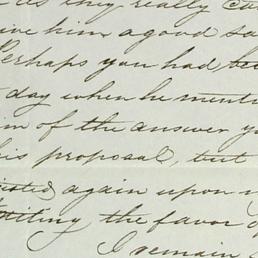 as they really
give him a good
Perhaps you had
day when he
of the answer
his proposal, but
again upon
the favor of
I remain